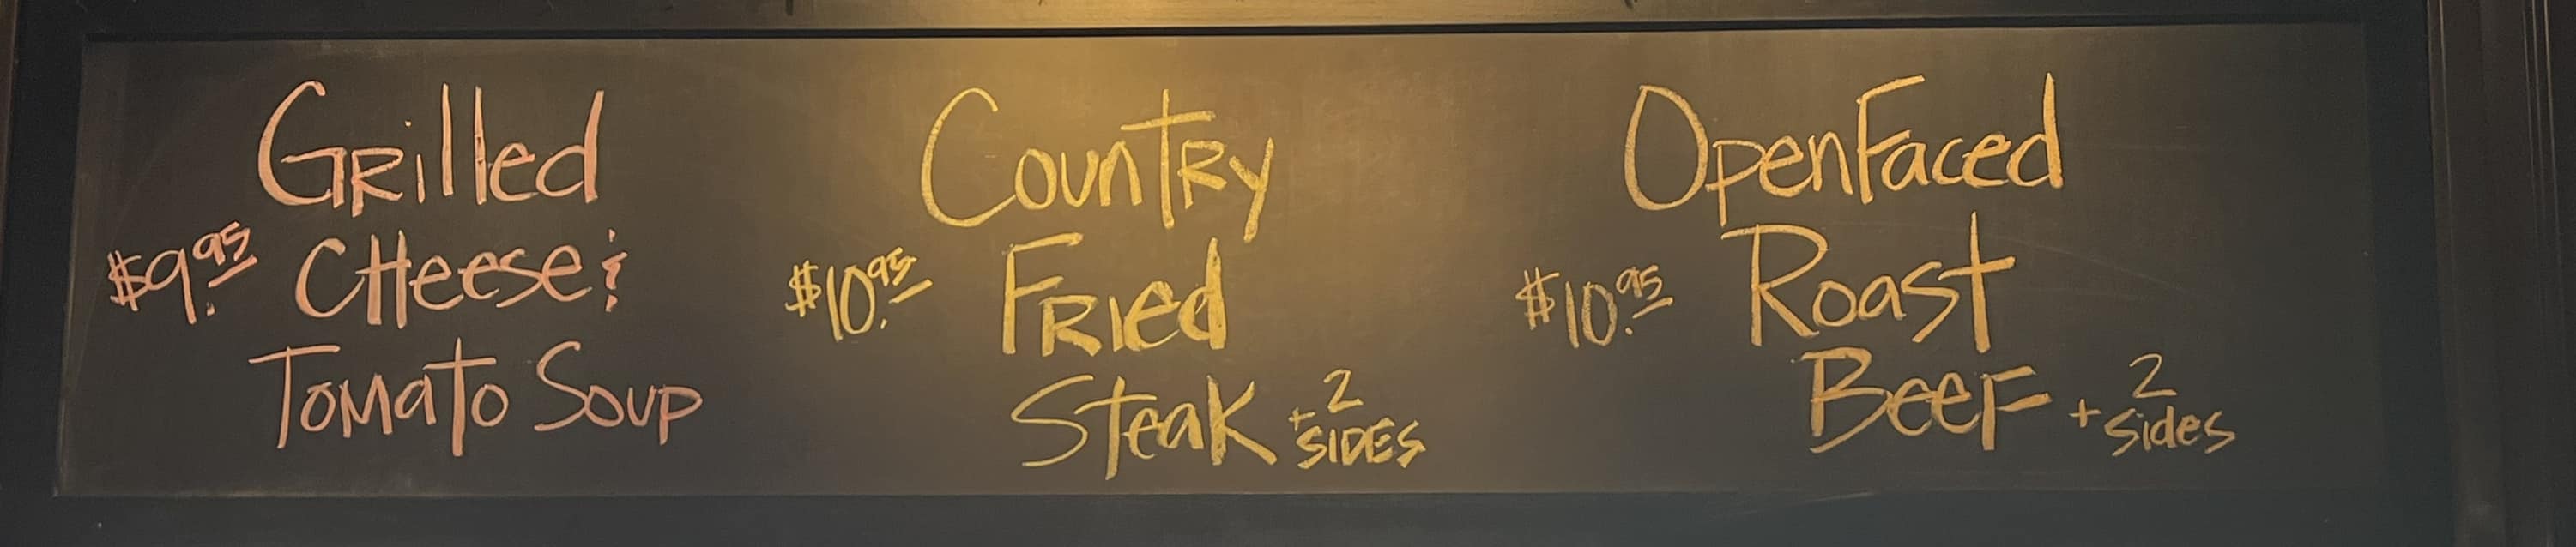 Grilled
$9.95 Cheese &
Tomato Soup
Country
$10.95 Fried
Steak + 2
SIDES
Open Faced
$10.95 Roast
Beef + 2
Sides